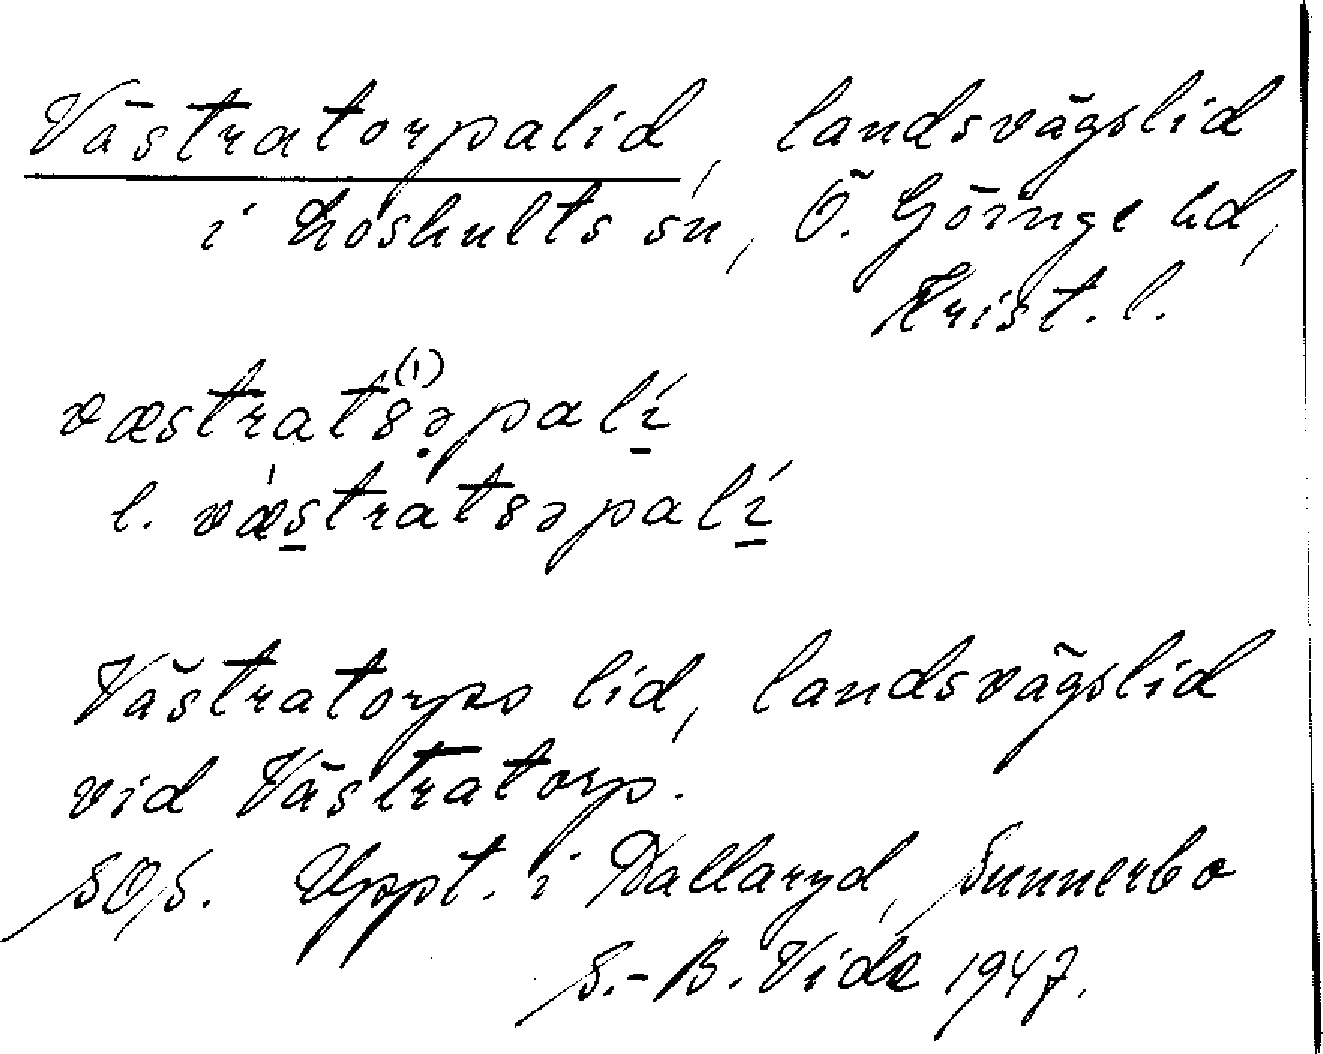 Västratorpalid, landsvägslid
i Loshults sn, Ö. Göinge hd,
Krist. l.
væstrats⁽¹⁾əpalí
l. væ̀stràtsəpalí
Västratorps lid, landsvägslid
vid Västratorp.
SOS. Uppt. i Hallaryd, Sunnerbo
S.-B. Vide 1947.